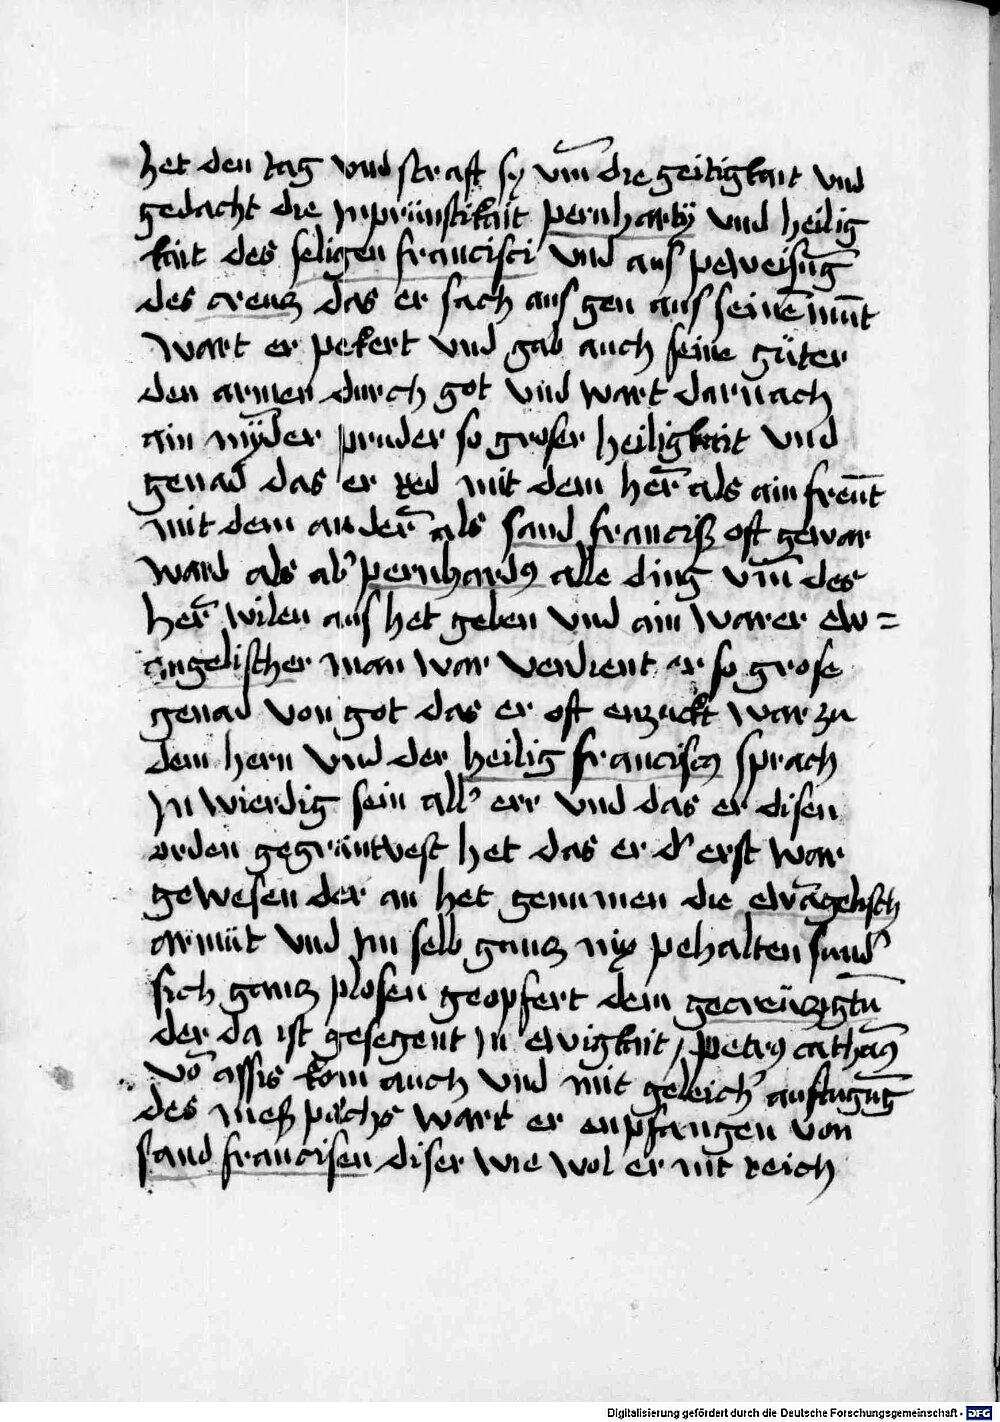 het den tag vnd straft sy vm̄ die geitigkait vnd
gedacht die jnprünstikait pernhardy vnd heilig
kait des seligen francisci vnd aus peweisūg
des creucz das er sach aus gen aus seinē mūt
wart er pekert vnd gab auch seine güter
den armen durch got vnd wart darnach
ain mÿder pruder so groser heiligkait vnd
genad das er red mit dem her̄ als ain freūt
mit dem ander̄ als sand francisß oft gewar
ward als ab' pernhardꝰ alle ding vm̄ des
her̄ wilen aus het geben vnd ain warer ew=
angelischer man war verdient er so grose
genad von got das er oft enzuckt war zu
dem hern vnd der heilig franciscꝰ sprach
jn wierdig sein all' err vnd das er disen
orden gegrüntvest het das er d' erst war
gewesen der an het genumen die ewāgelisch
armüt vnd jm selb gancz nix pehalten sund'
sich gancz plosen geopfert dem gecreüczigtū
der da ist gesegent jn ewigkait / petrꝰ cathāꝰ
vō assis kom auch vnd mit geleich' auftugūg
des meß puchs wart er enpfangen von
sand francisen diser wie wol er nit reich
Digitalisierung gefördert durch die Deutsche Forschungsgemeinschaft - DFG